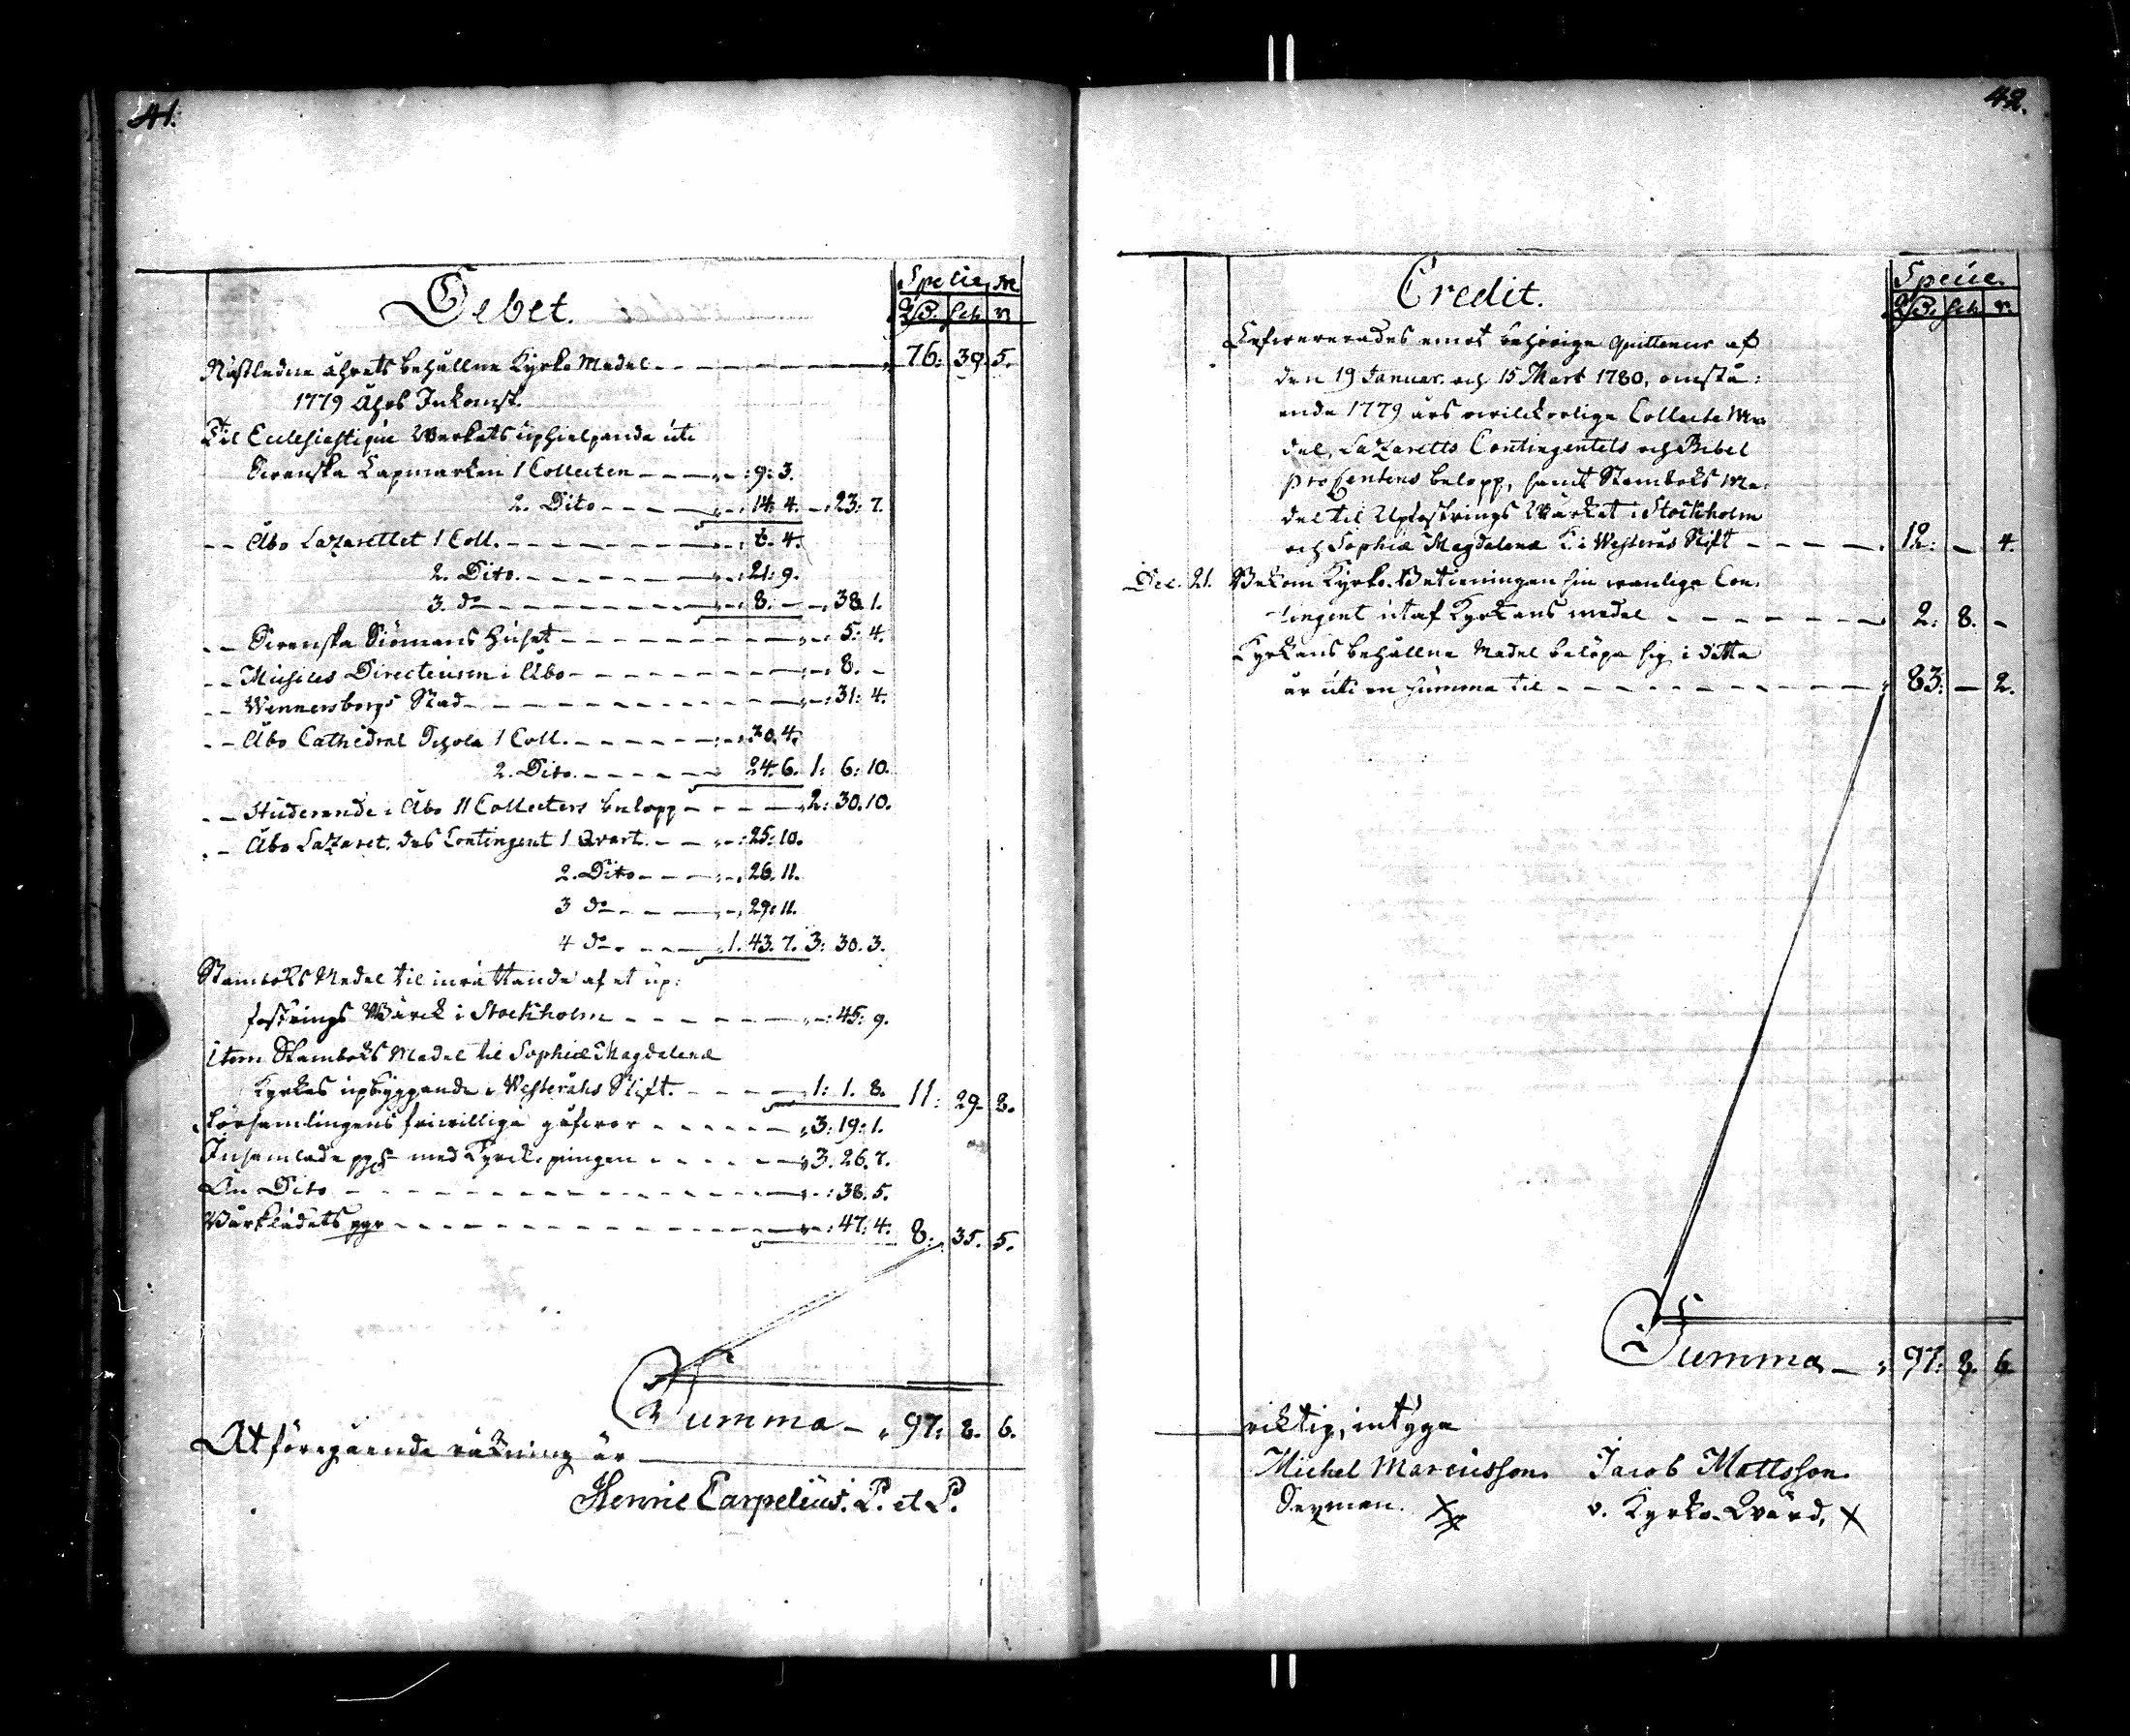 41.
Debet.
Specie m
Rd. sch. r.
Nästledne åhrets behållne Kyrko Medel - - - 76: 39. 5.
1779 Åhrs Inkomst.
Til Ecclesiastique Werkets uphielpande uti
Svenska Lapmarken 1 Collecten - - - 9: 3.
2. Dito - - - 14: 4. - 23: 7.
- - Åbo Lazarettet 1 Coll. - - - 8. 4.
2. Dito - - - 21: 9.
3. do - - - 8: - - 38. 1.
- - Svenska Siömans Huset - - - 5: 4.
- - Musices Directeuren i Åbo - - - 8. -
- - Wennersborgs Stad - - - 31: 4.
- - Åbo Cathedral Schola 1 Coll. - - - 30. 4.
2. Dito - - - 24. 6. 1: 6: 10.
- - Studerande i Åbo 11 Collecters belopp - - - 2: 30. 10.
- - Åbo Lazaret. des Contingent 1 Qvart. - - - 25: 10.
2. Dito - - - 26. 11.
3 do - - - 29: 11.
4 do - - - 1. 43. 7. 3: 30. 3.
Stamboks Medel til inrättande af et up:
fostrings Wärck i Stockholm - - - 45: 9.
item Stamboks Medel til Sophiæ Magdalenæ
Kyrkas upbyggande i Westeråhs Stift. - - - 1: 1. 8. 11: 29. 8.
Församlingens friwilliga gåfwor - - - 3: 19: 1.
Insamlade pgr med Kyrck. pungen - - - 3. 26. 7.
Än Dito - - - 38. 5.
Wärklädets pgr - - - 47: 4. 8: 35. 5.
Summa - 97: 8. 6.
Atföregående räkning är
Henric Carpelius. P. et P.
42.
Credit.
Specie.
Rd. sch. r.
Lefwererades emot behörige quittencer af
den 19 Januar. och 15 Mart 1780, omstå:
ende 1779 års owilckorlige Collecte Me
del, Lazaretts Contingentets och Bibel
procentens belopp, samt Stamboks Me:
del til Upfostrings Wärket i Stockholm
och Sophiæ Magdalenæ K. i Westerås Stift - - - 12: - 4.
Dec. 21. Bekom Kyrko-Betieningen sin wanliga Con:
tingent utaf Kyrkans medel - - - 2: 8. -
Kyrkans behållne Medel belöpa sig i detta
år uti en summa til - - - 83: - 2.
Summa - 97: 8. 6.
riktig, intyga
Michel Marcusson. Jacob Mattsson.
Sexman. v. Kyrko-Qvärd, X